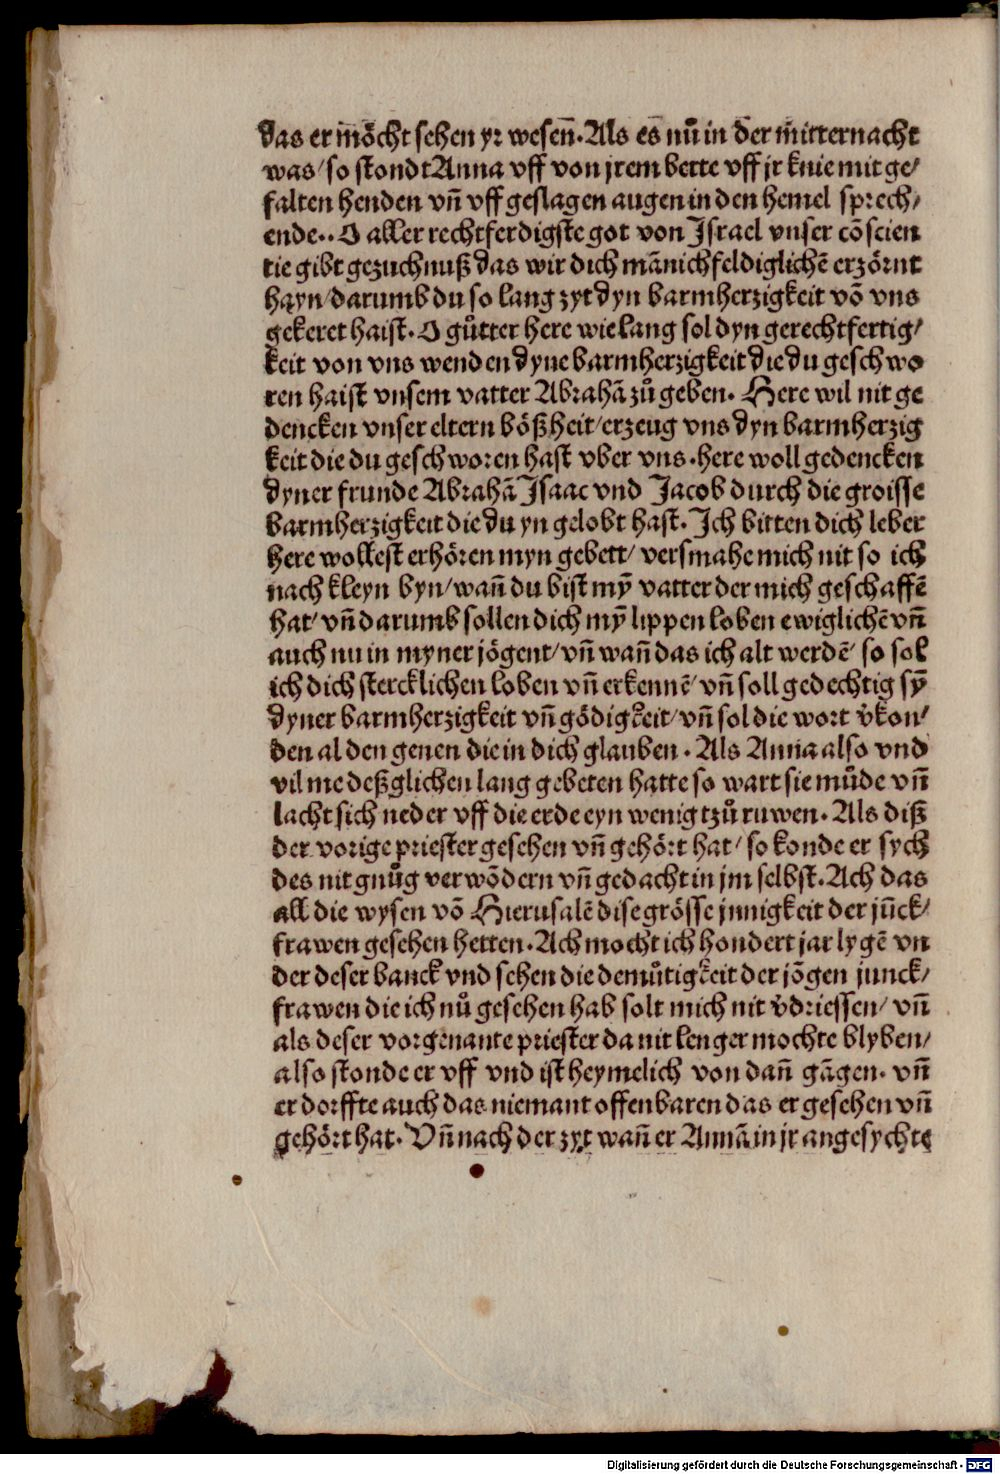 das er möcht sehen yr wesen̄. Als es nů in der mitternacht
was/ so stondt Anna vff von jrem bette vff jr knie mit ge/
falten henden vn̄ vff geslagen augen in den hemel sprech/
ende.. O aller rechtferdigste got von Israel vnser cōscien
tie gibt gezuchnuß das wir dich mānichfeldiglichē erzörnt
hayn/ darumb du so lang zyt dyn barmherzigkeit vō vns
gekeret haist. O gůtter here wie lang sol dyn gerechtfertig/
keit von vns wenden dyne barmherzigkeit die du geschwo
ren haist vnsem vatter Abrahā zů geben. Here wil nit ge
dencken vnser eltern bößheit/ erzeug vns dyn barmherzig
keit die du geschworen hast vber vns. here woll gedencken
dyner frunde Abrahā Isaac vnd Jacob durch die groisse
barmherzigkeit die du yn gelobt hast. Ich bitten dich leber
here wollest erhören myn gebett/ versmahe mich nit so ich
nach kleyn byn/ wan̄ du bist mȳ vatter der mich geschaffē
hat/ vn̄ darumb sollen dich mȳ lippen loben ewiglichē vn̄
auch nu in myner jögent/ vn̄ wan̄ das ich alt werdē/ so sol
ich dich stercklichen loben vn̄ erkennē/ vn̄ soll gedechtig sȳ
dyner barmherzigkeit vn̄ gödigkeit/ vn̄ sol die wort v̊kon/
den al den genen die in dich glauben. Als Anna also vnd
vil me deßglichen lang gebeten hatte so wart sie můde vn̄
lacht sich neder vff die erde eyn wenig tzů ruwen. Als diß
der vorige priester gesehen vn̄ gehört hat/ so konde er sych
des nit gnůg verwōdern vn̄ gedacht in jm selbst. Ach das
all die wysen vō Hierusalē dise grösse jnnigkeit der jūck/
frawen gesehen hetten. Ach mocht ich hondert jar lygē vn
der deser banck vnd sehen die demůtigkeit der jōgen junck/
frawen die ich nů gesehen hab solt mich nit v̊driessen/ vn̄
als deser vorgenante priester da nit lenger mochte blyben/
also stonde er vff vnd ist heymelich von dan̄ gāgen. vn̄
er dorffte auch das niemant offenbaren das er gesehen vn̄
gehört hat. Vn̄ nach der zyt wan̄ er Annā in jr angesychte
Digitalisierung gefördert durch die Deutsche Forschungsgemeinschaft - DFG